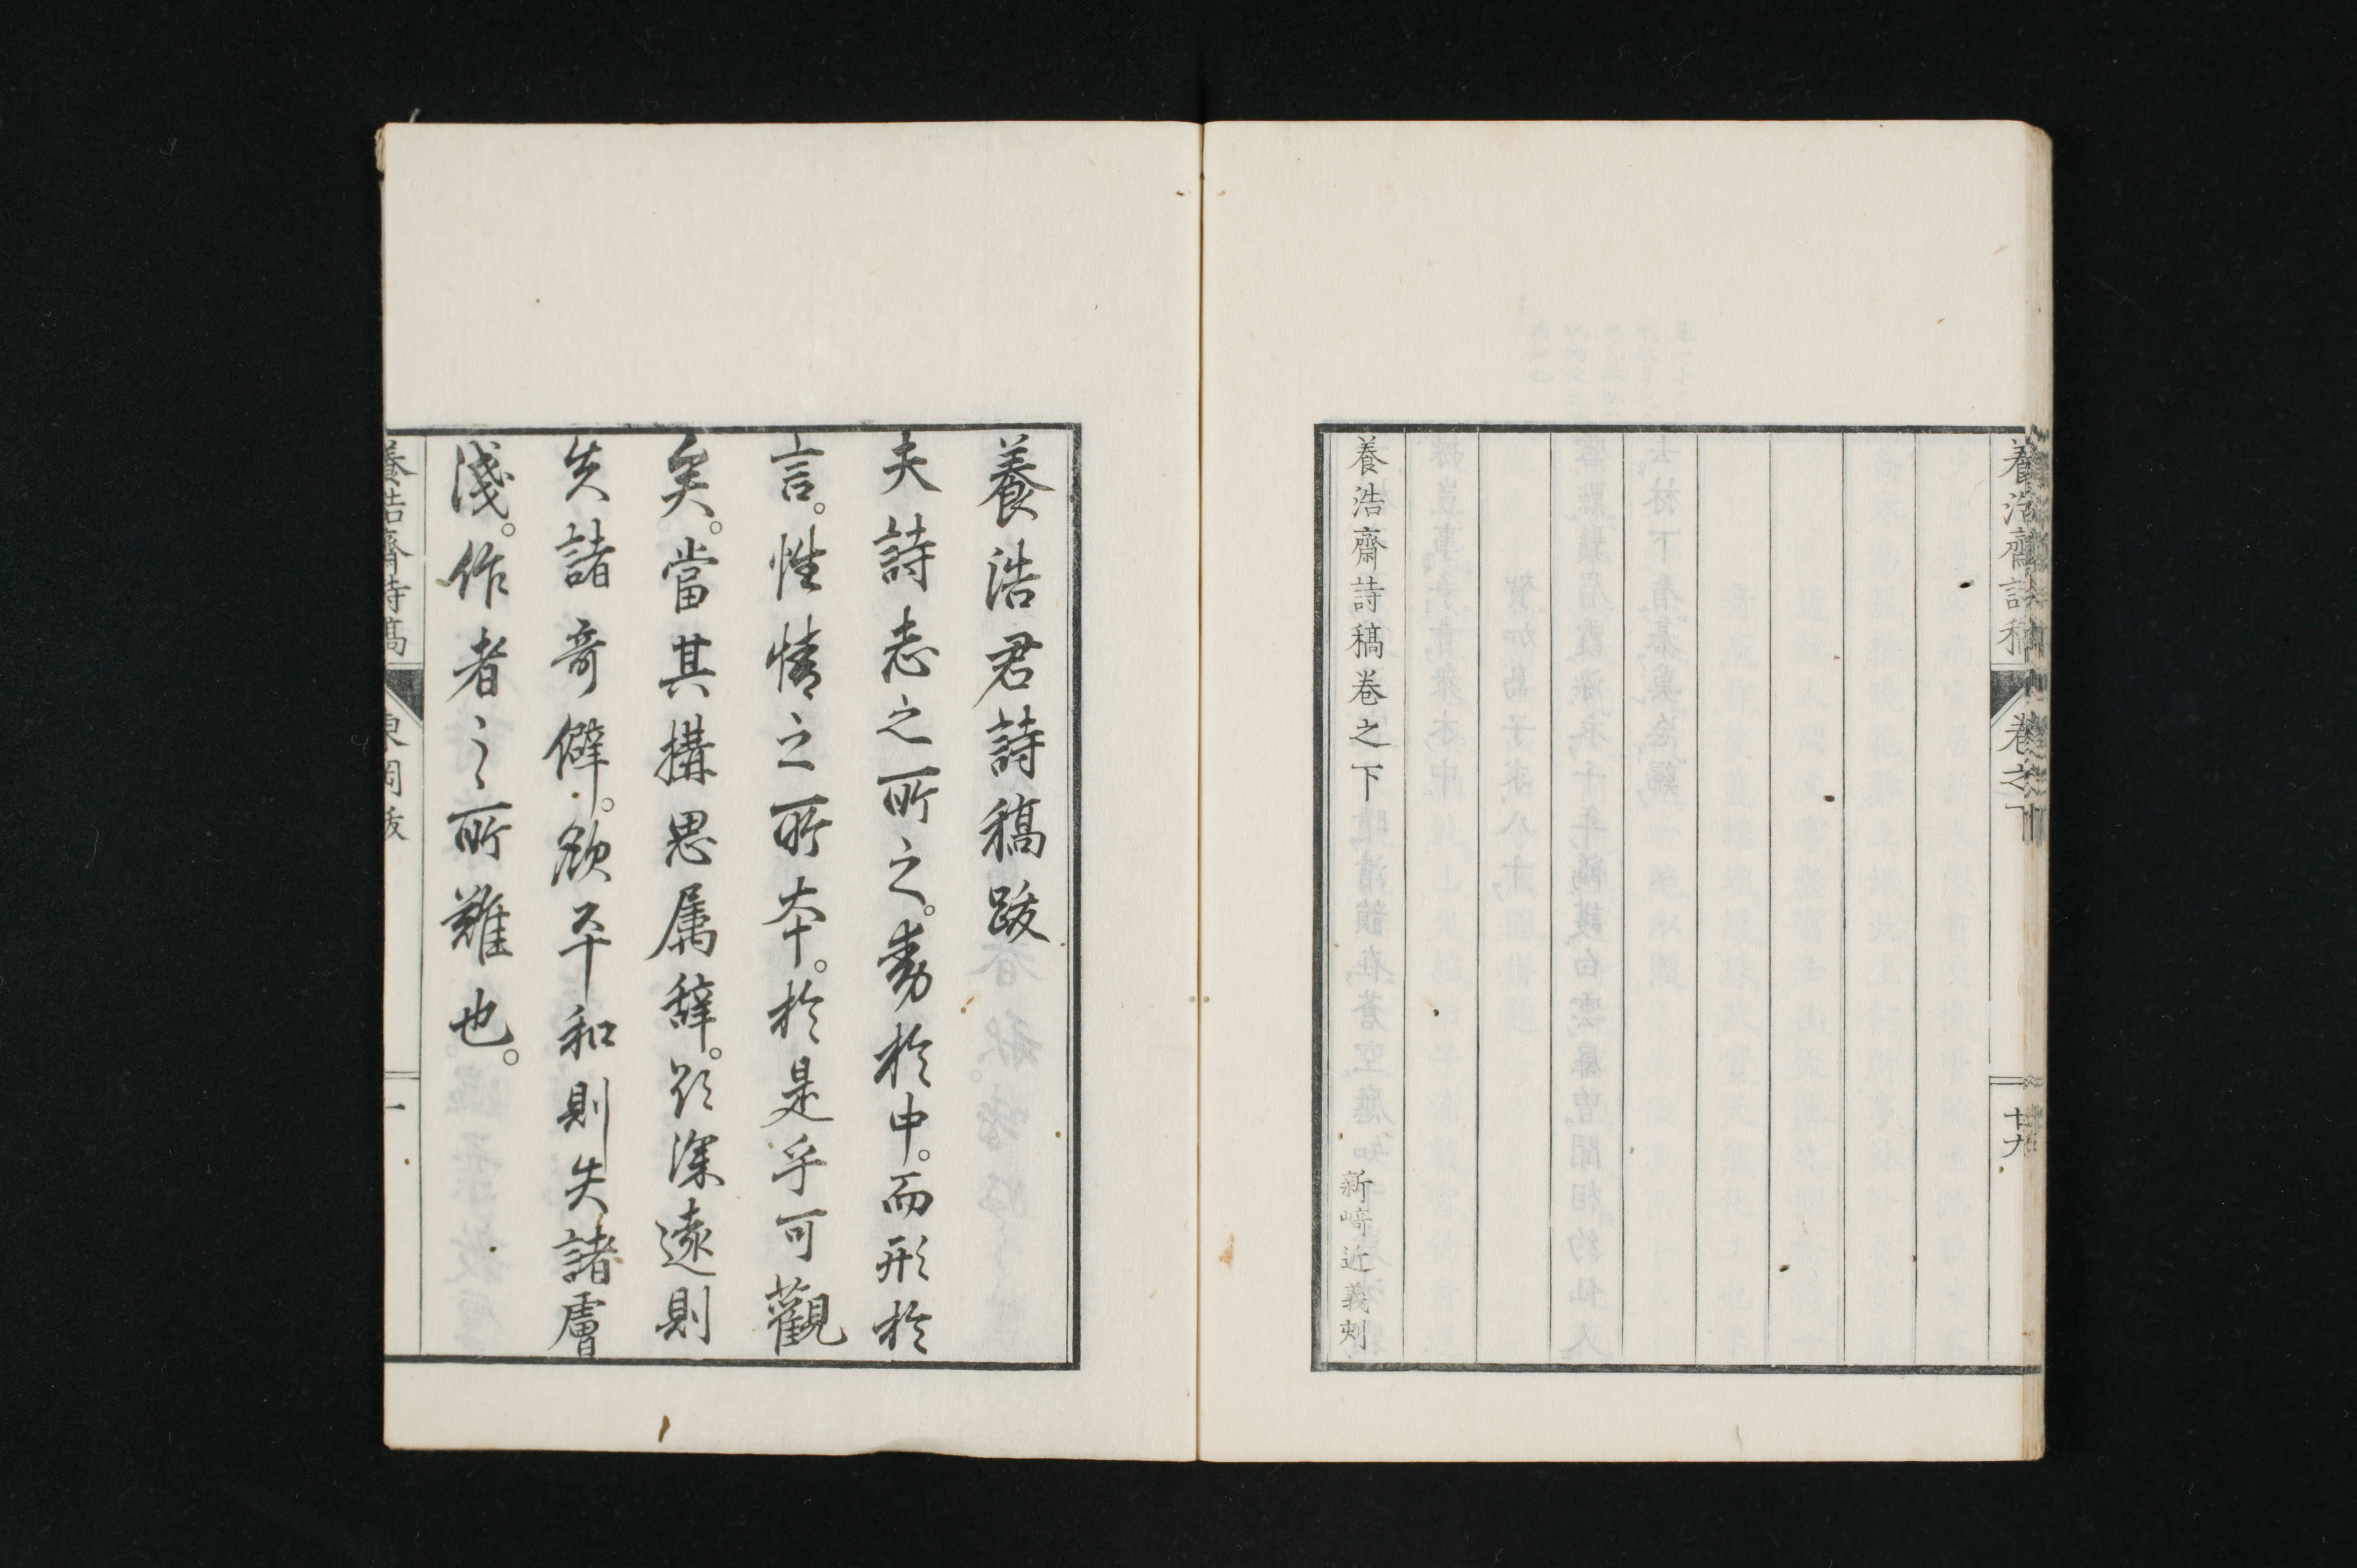 養浩齋詩稿
卷之下
廿九
養浩齋詩稿卷之下
新﨑近義刻
養浩君詩稿跋
夫詩志之所之。動於中。而形於
言。性情之所本。於是乎可觀
矣。當其搆思属辞。欲深遠則
失諸奇僻。欲平和則失諸膚
淺。作者之所難也。
養浩齋詩稿
東岡跋
一